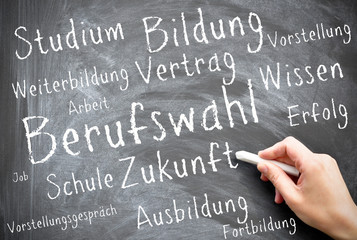 Studium Bildung Vorstellung
Weiterbildung Vertrag
Wissen
Arbeit
Berufswahl Erfolg
Job Schule Zukunft
Vorstellungsgespräch Ausbildung
Fortbildung